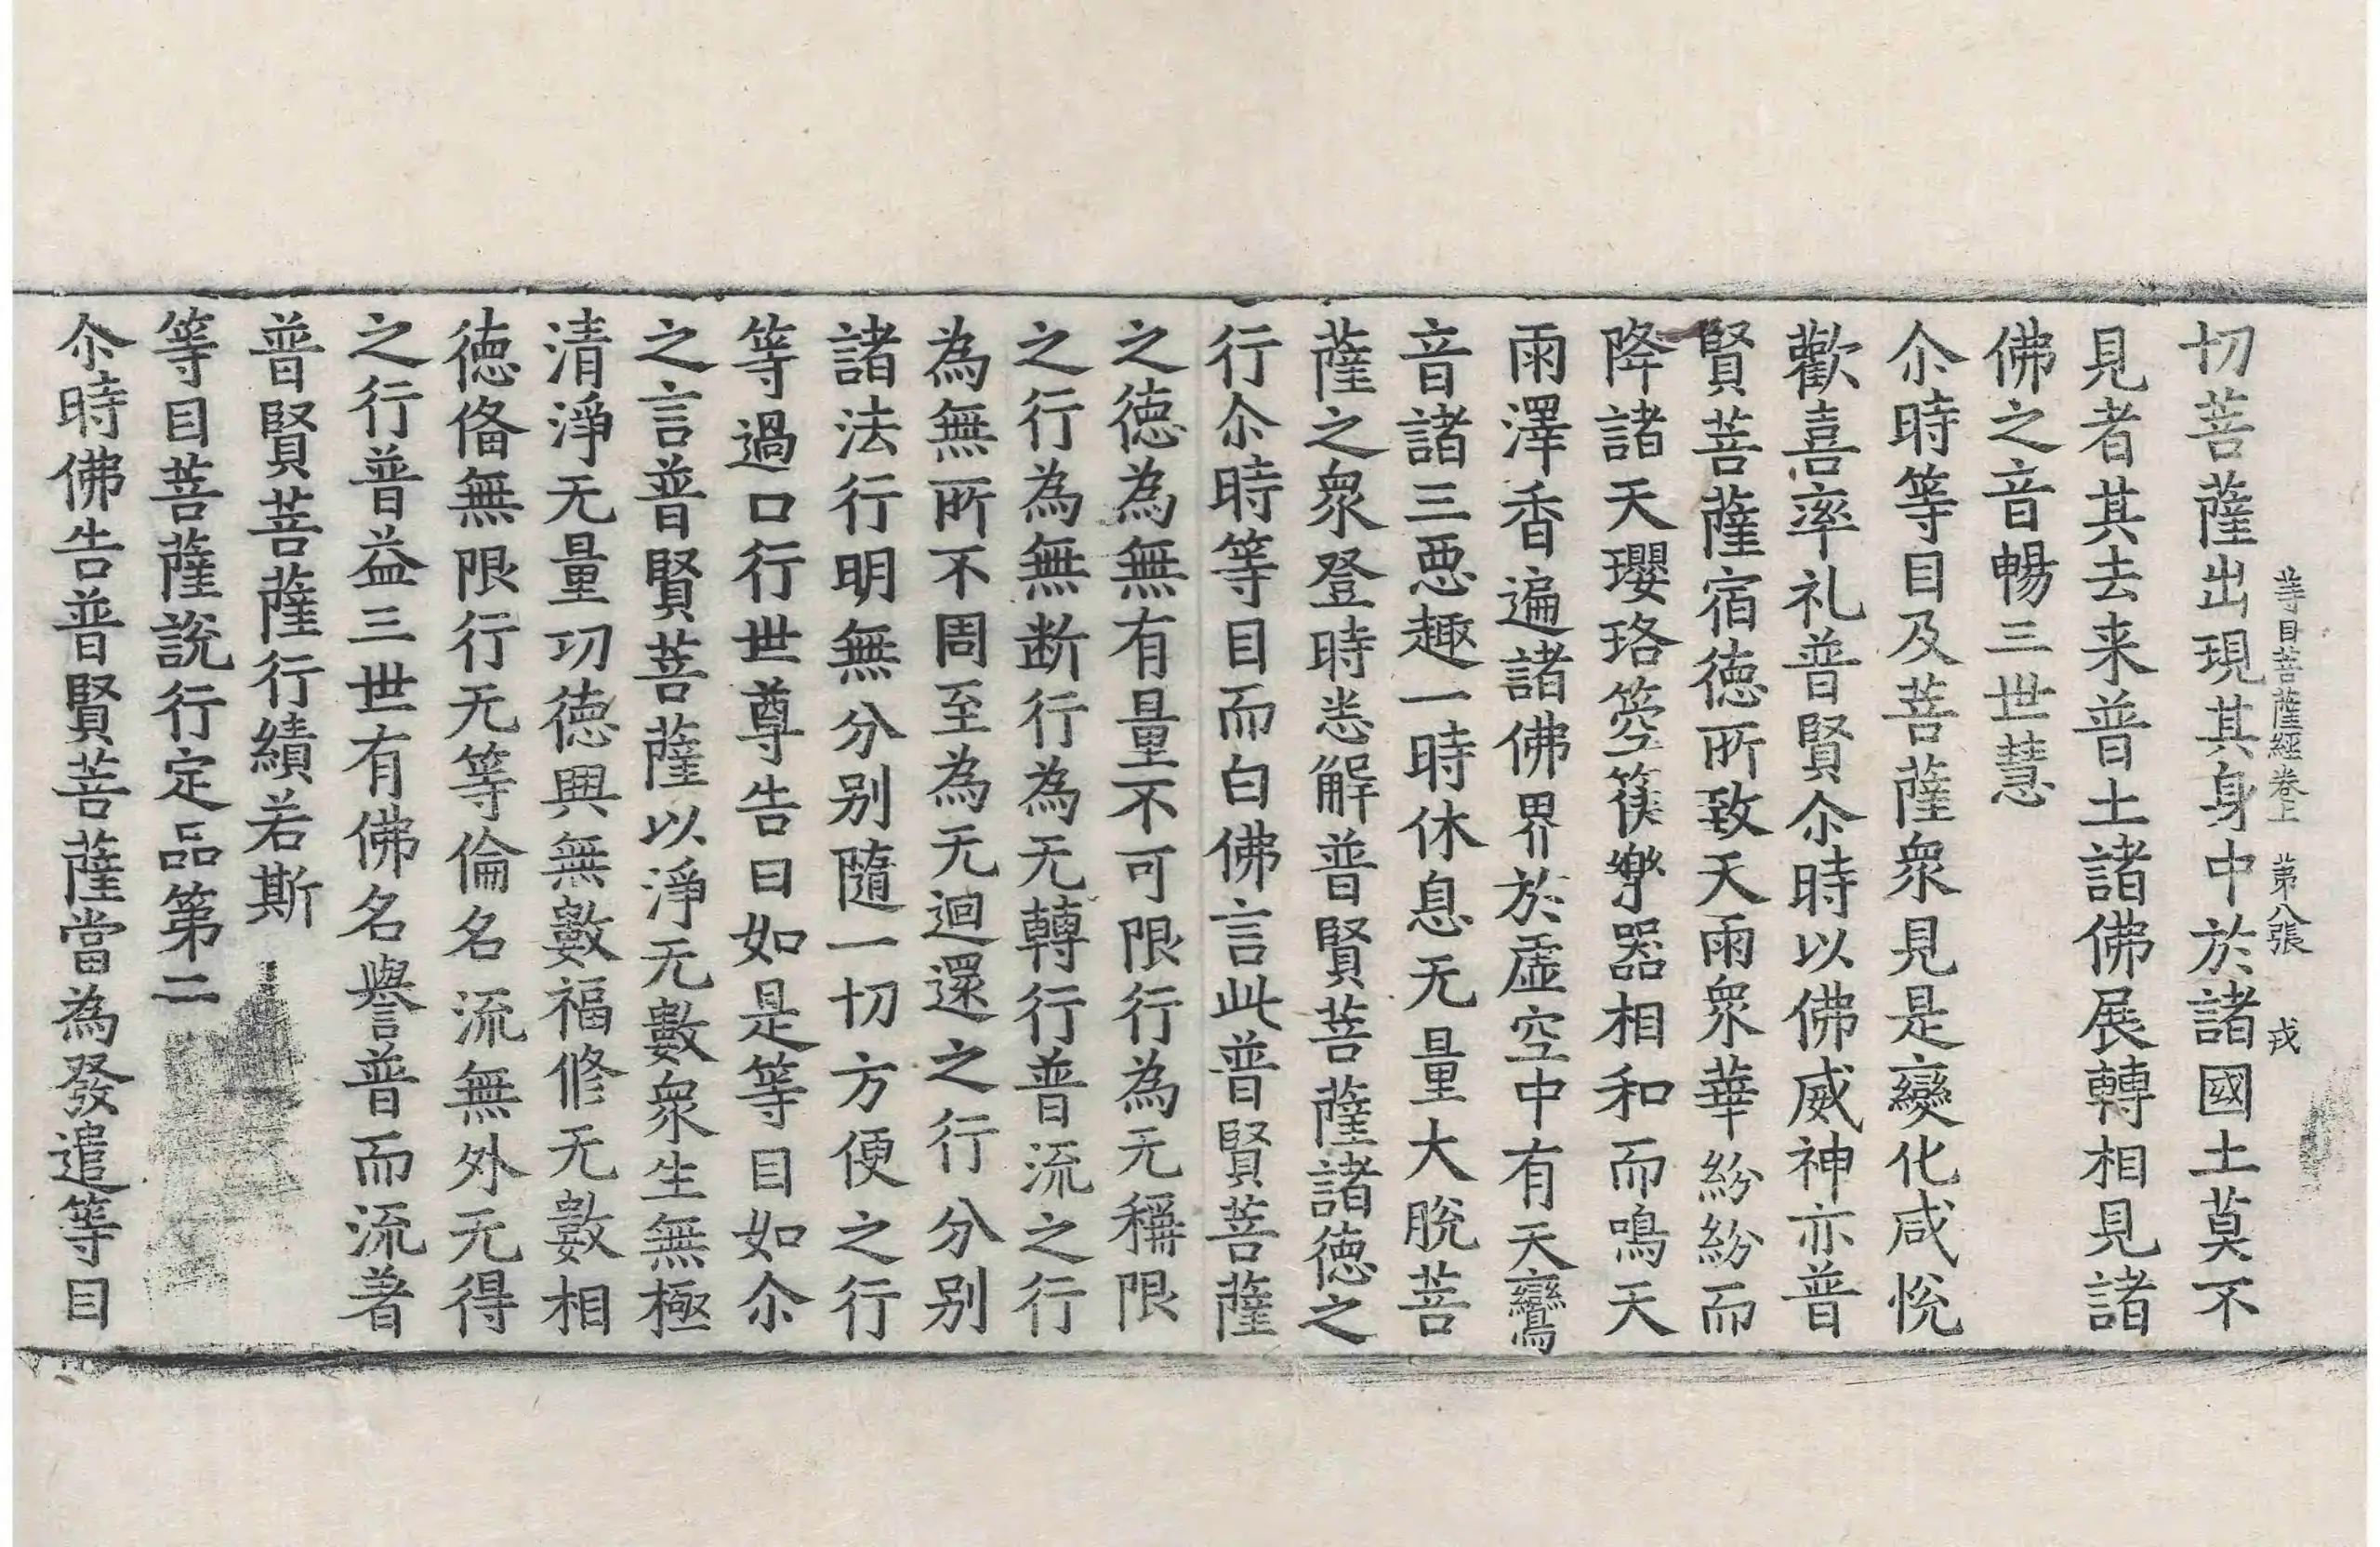 等目菩薩經卷上 第八張 戎
切菩薩出現其身中於諸國土莫不
見者其去来普土諸佛展轉相見諸
佛之音暢三世慧
尒時等目及菩薩衆見是變化咸悅
歡喜率礼普賢尒時以佛威神亦普
賢菩薩宿德所致天雨衆華紛紛而
降諸天瓔珞箜篌樂器相和而鳴天
雨澤香遍諸佛界於虛空中有天鸞
音諸三惡趣一時休息无量大脫菩
薩之衆登時悉解普賢菩薩諸德之
行尒時等目而白佛言此普賢菩薩
之德為無有量不可限行為无稱限
之行為無断行為无轉行普流之行
為無所不周至為无迴還之行分别
諸法行明無分别隨一切方便之行
等過口行世尊告曰如是等目如尒
之言普賢菩薩以淨无數衆生無極
清淨无量功德興無數福修无數相
德俻無限行无等倫名流無外无得
之行普益三世有佛名譽普而流著
普賢菩薩行績若斯
等目菩薩說行定品第二
尒時佛告普賢菩薩當為發遣等目